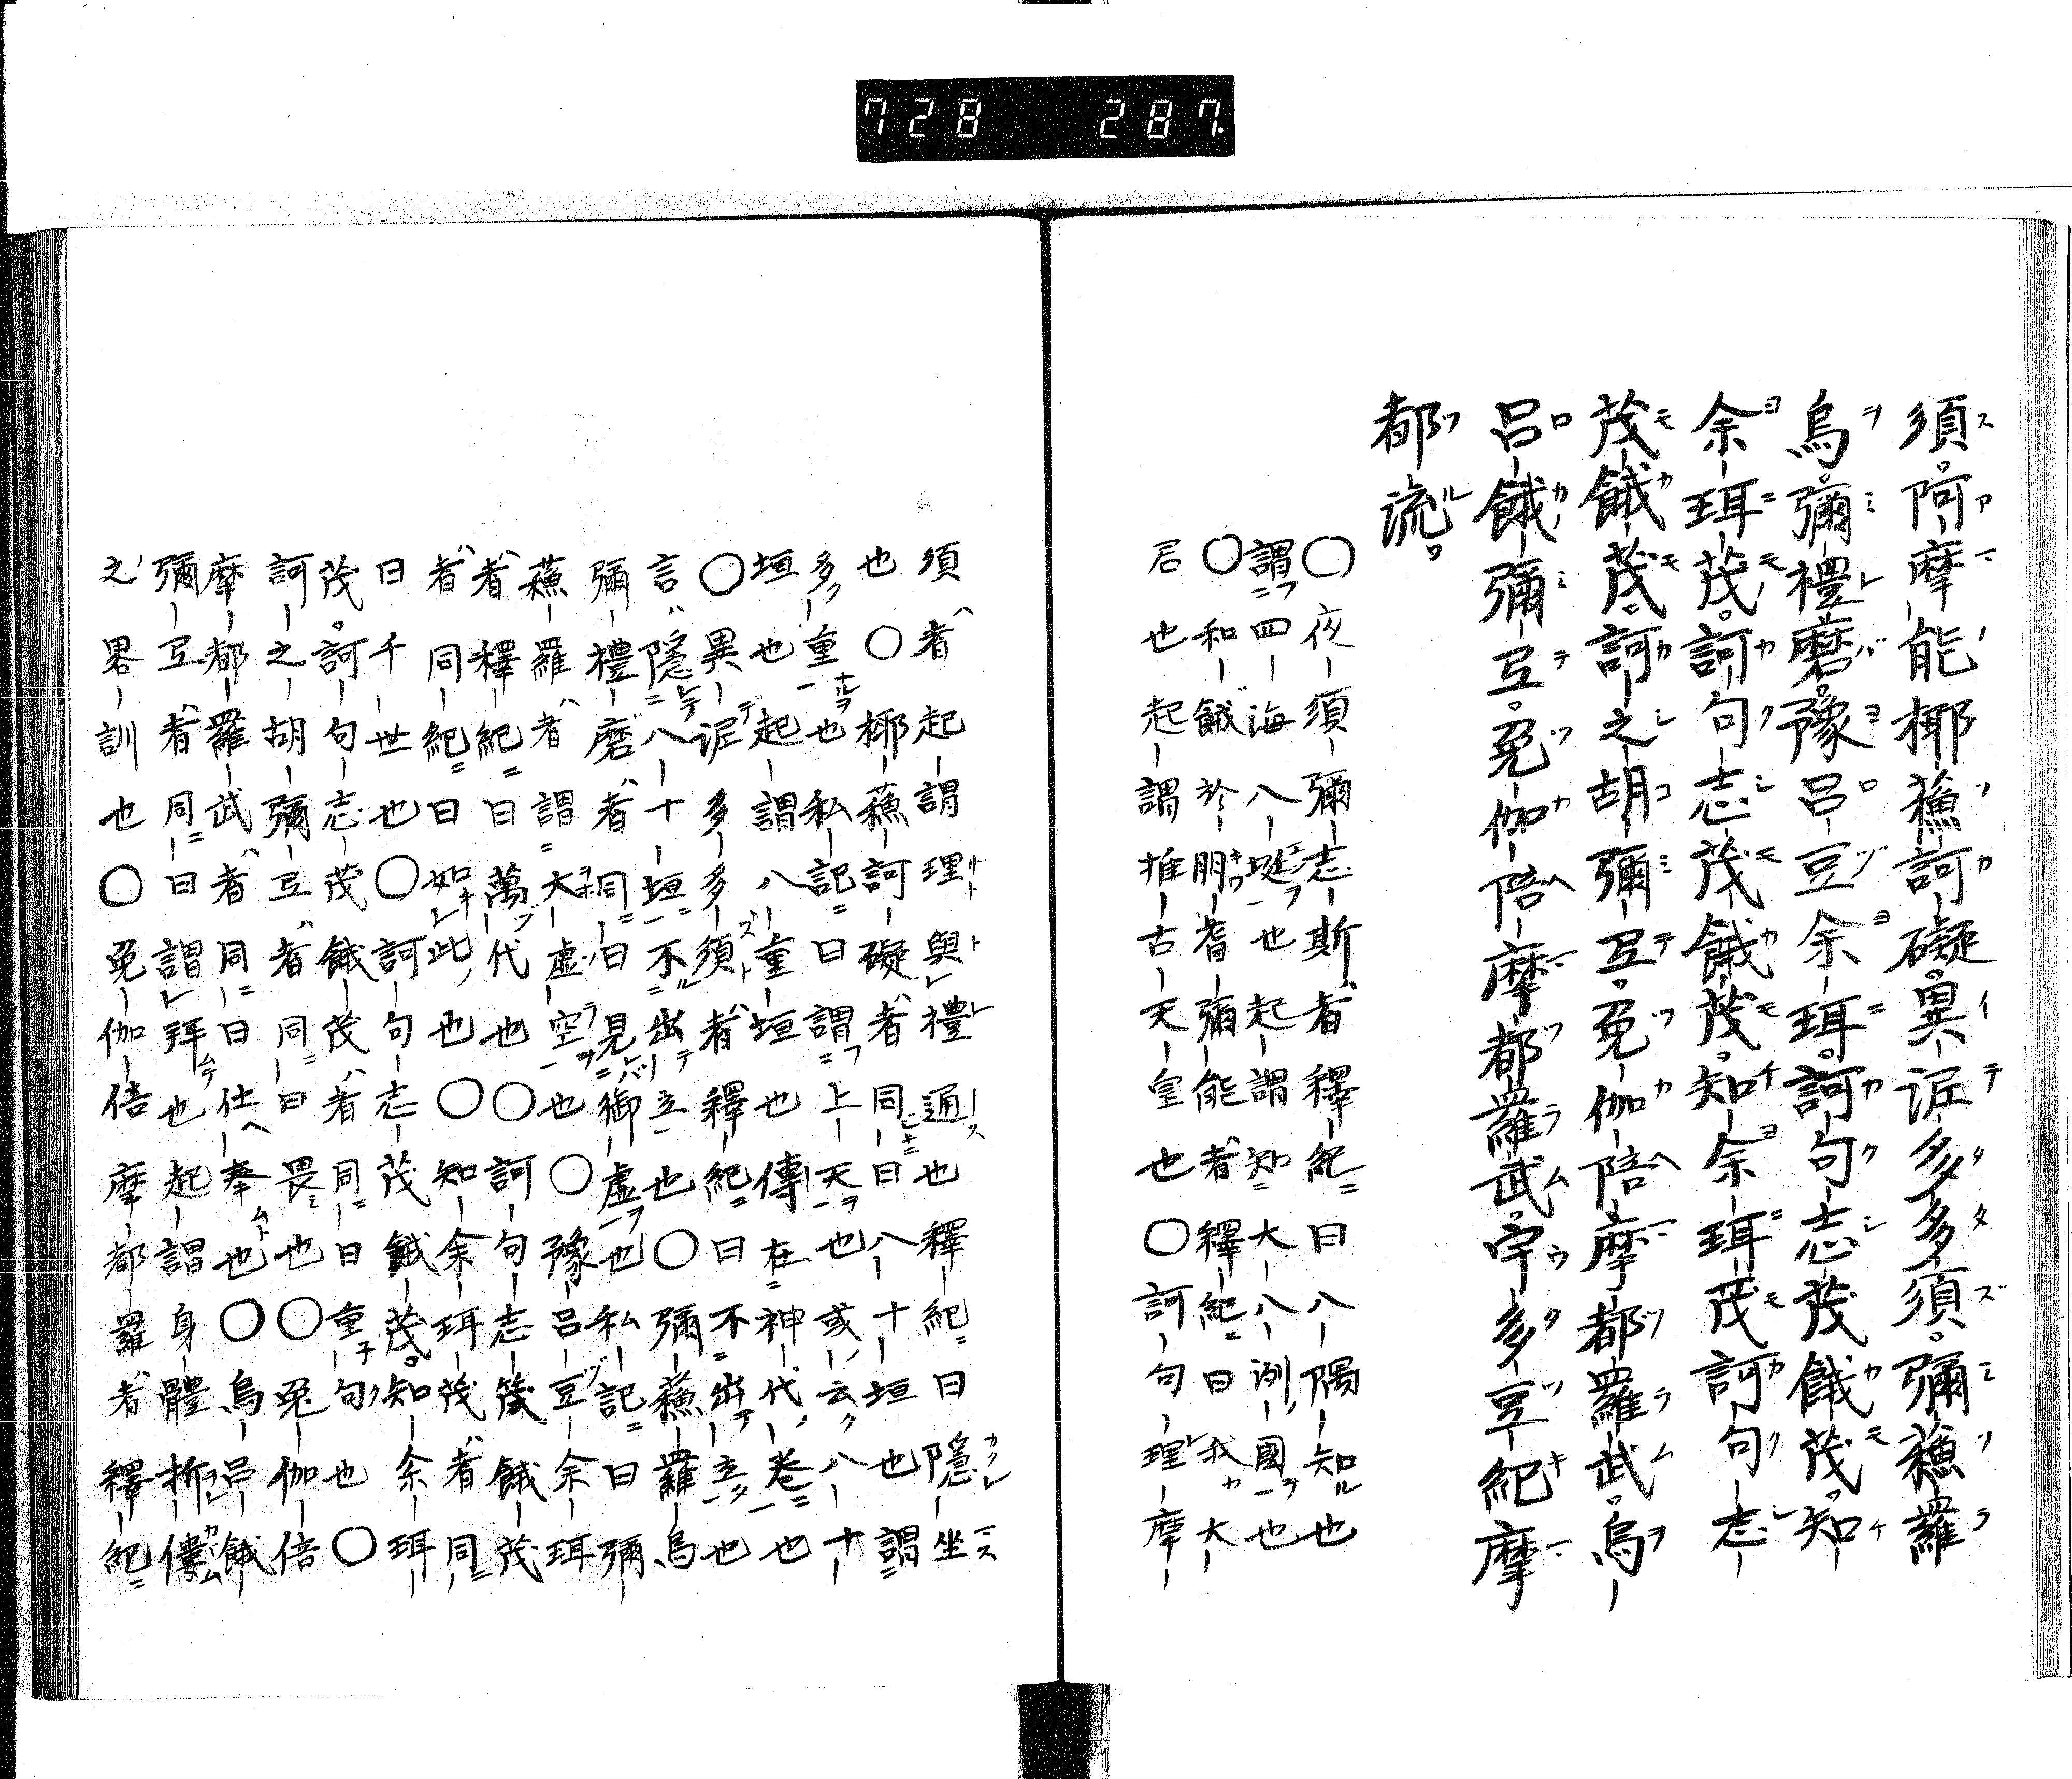 728 287
須阿摩能椰蘓訶礙異泥多多須彌蘓羅
烏彌禮磨豫呂豆余珥訶句志茂餓茂知
余珥茂訶句志茂餓茂知余珥茂訶句志
茂餓茂訶之胡彌互兔伽陪摩都羅武烏
呂餓彌互兔伽陪摩都羅武宇多豆紀摩
都流
〇夜須彌志斯者釋紀曰八隅知也
謂四海八埏也起謂知大八洲國也
〇和餓於朋耆彌能者釋紀曰我大
君也起謂推古天皇也〇訶句理摩
須者起謂理與禮通也釋紀曰隱坐
也〇椰蘓訶礙者同曰八十垣也謂
多重也私記曰謂上天也或云八十
垣也起謂八重垣也傳在神代卷也
〇異泥多多須者釋紀曰不出立也
言隱八十垣不出立也〇彌蘓羅烏
彌禮磨者同曰見御虛也私記曰彌
蘓羅者謂大虛空也〇豫呂豆余珥
者釋紀曰萬代也〇訶句志茂餓茂
者同紀曰如此也〇知余珥茂者同
曰千世也〇訶句志茂餓茂知余珥
茂訶句志茂餓茂者同曰重句也〇
訶之胡彌互者同曰畏也〇兔伽倍
摩都羅武者同曰仕奉也〇烏呂餓
彌互者同曰謂拜也起謂身體折僂
之畧訓也〇兔伽倍摩都羅者釋紀